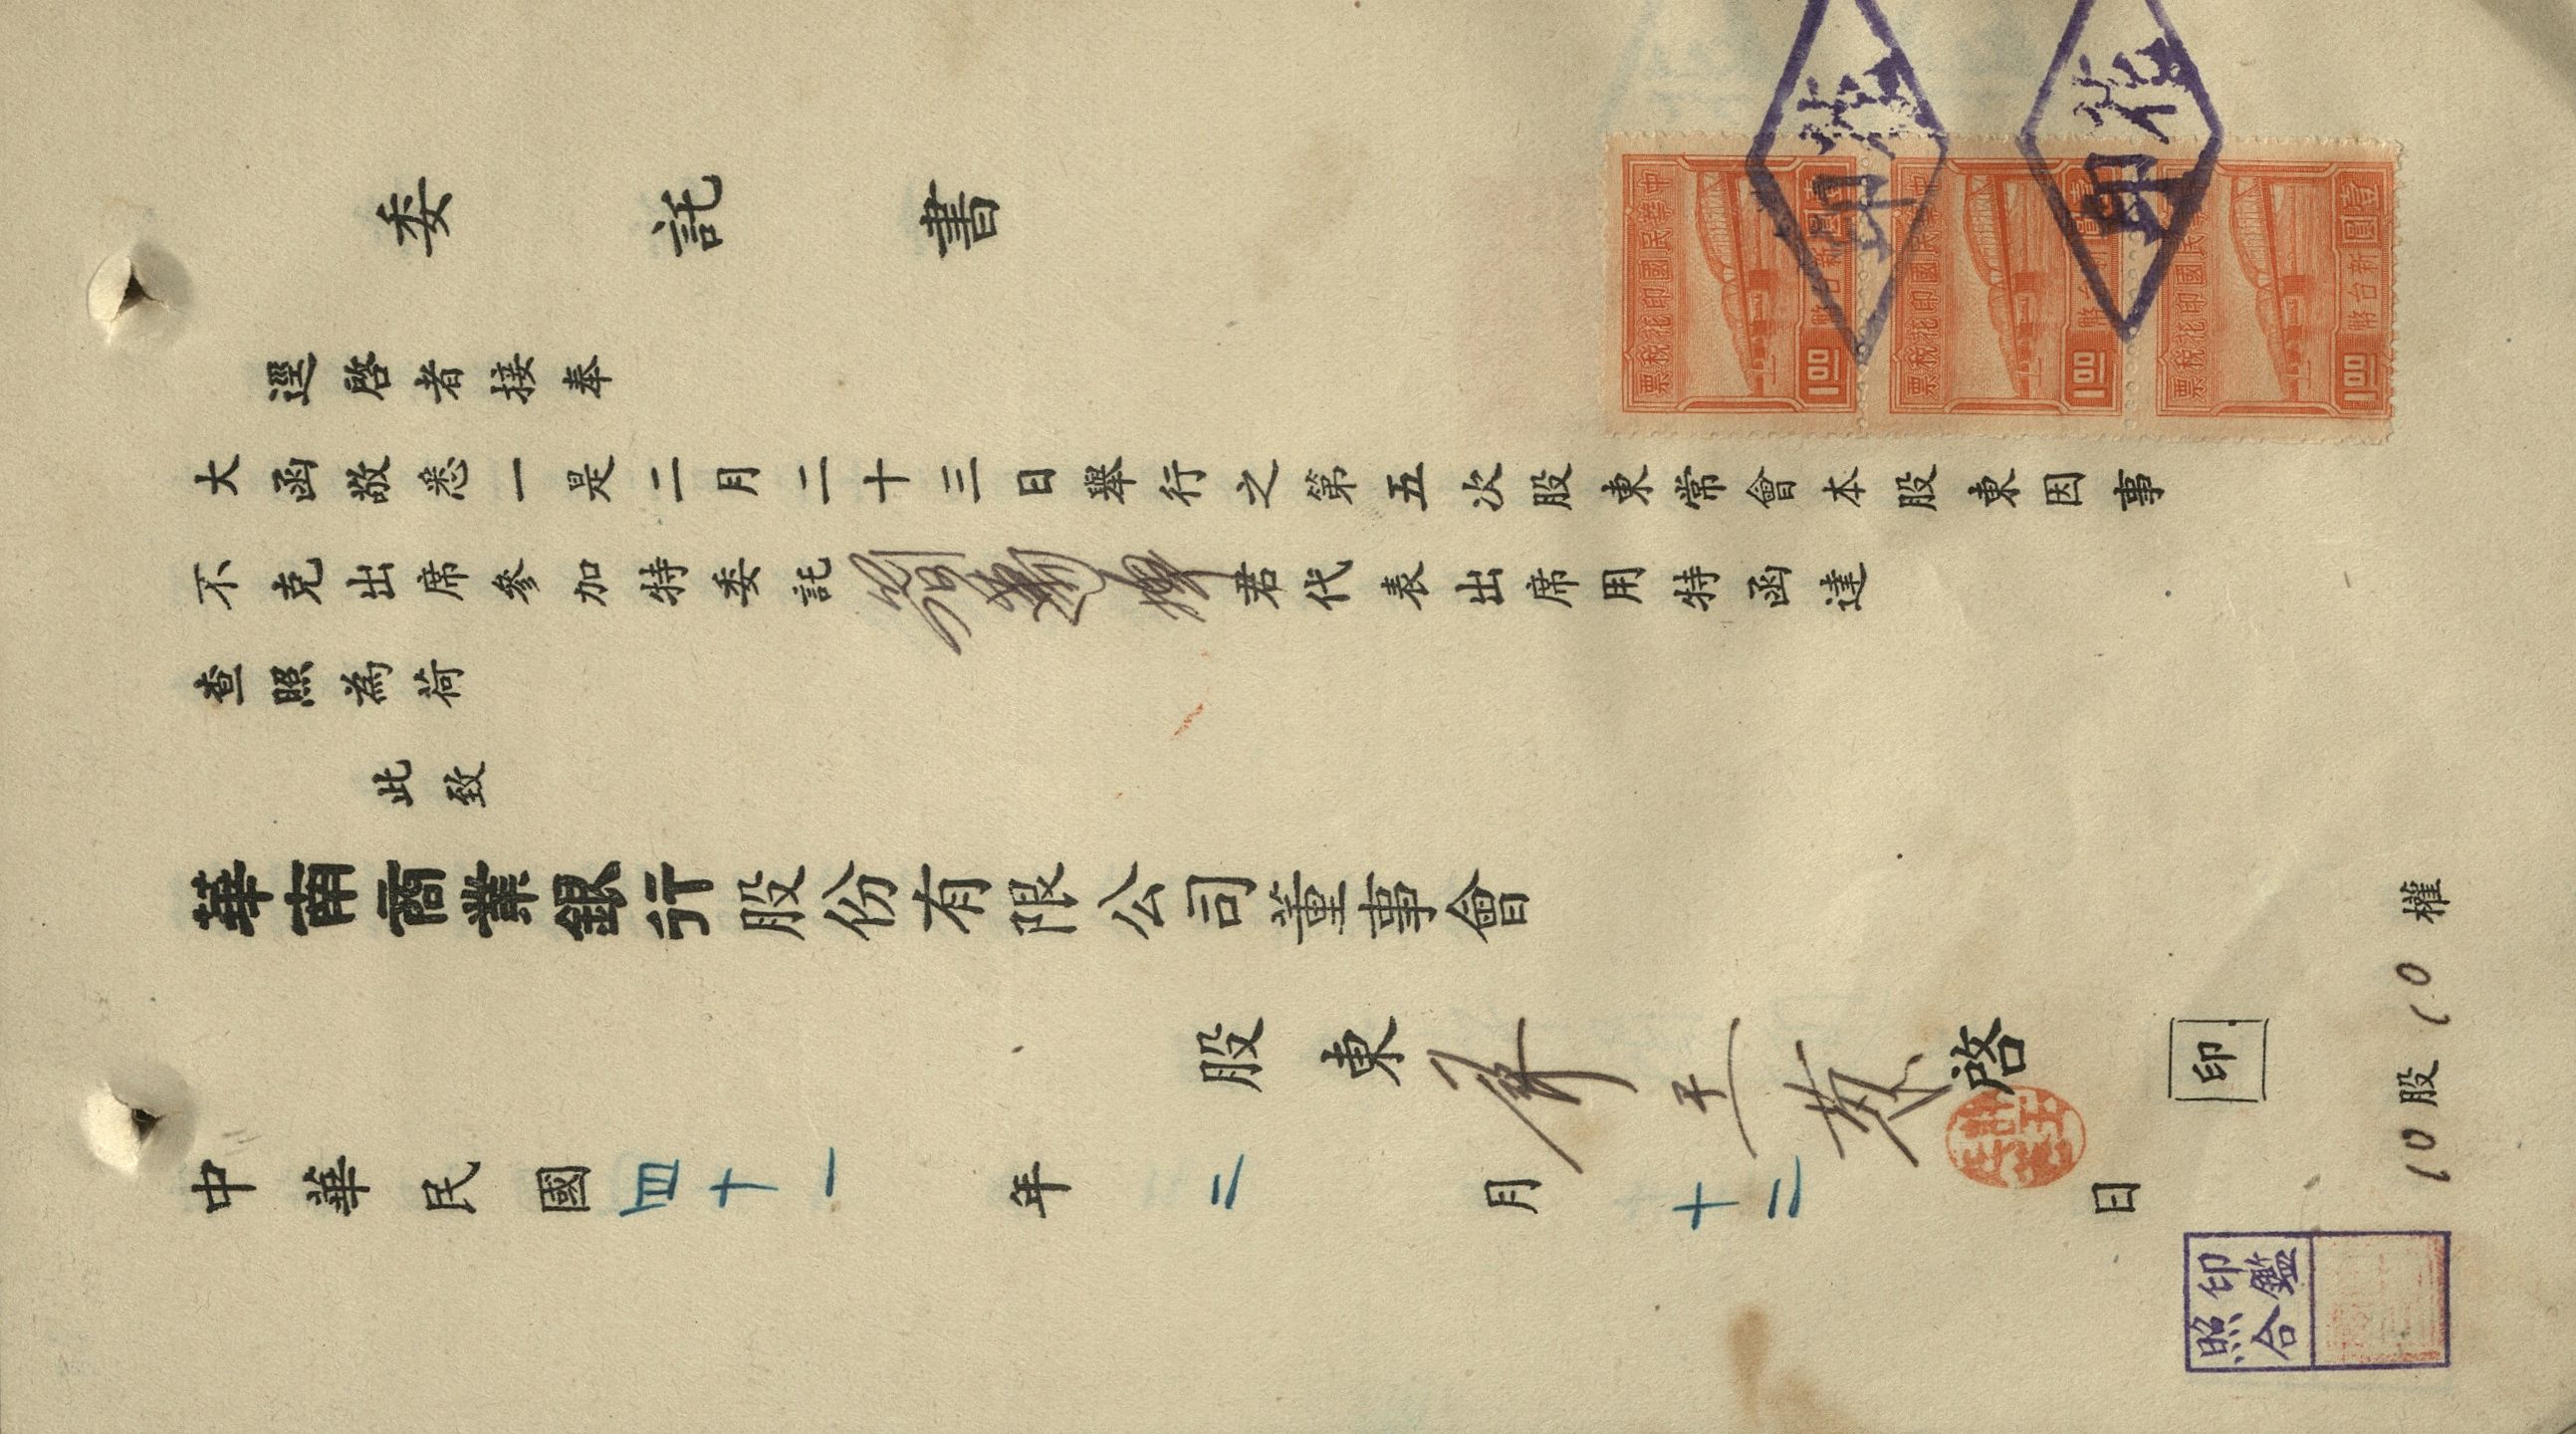 委託書
逕啓者接奉
大函敬悉一是二月二十三日舉行之第五次股東常會本股東因事
不克出席參加特委託 君代表出席用特函達
查照為荷
此致
華南商業銀行股份有限公司董事會
股東 啓
印
10股10權
中華民國四十一年二月十二日
印鑑
照合
中華民國印花稅票
壹圓
新台幣
1.00
中華民國印花稅票
壹圓
新台幣
1.00
中華民國印花稅票
壹圓
新台幣
1.00
印花